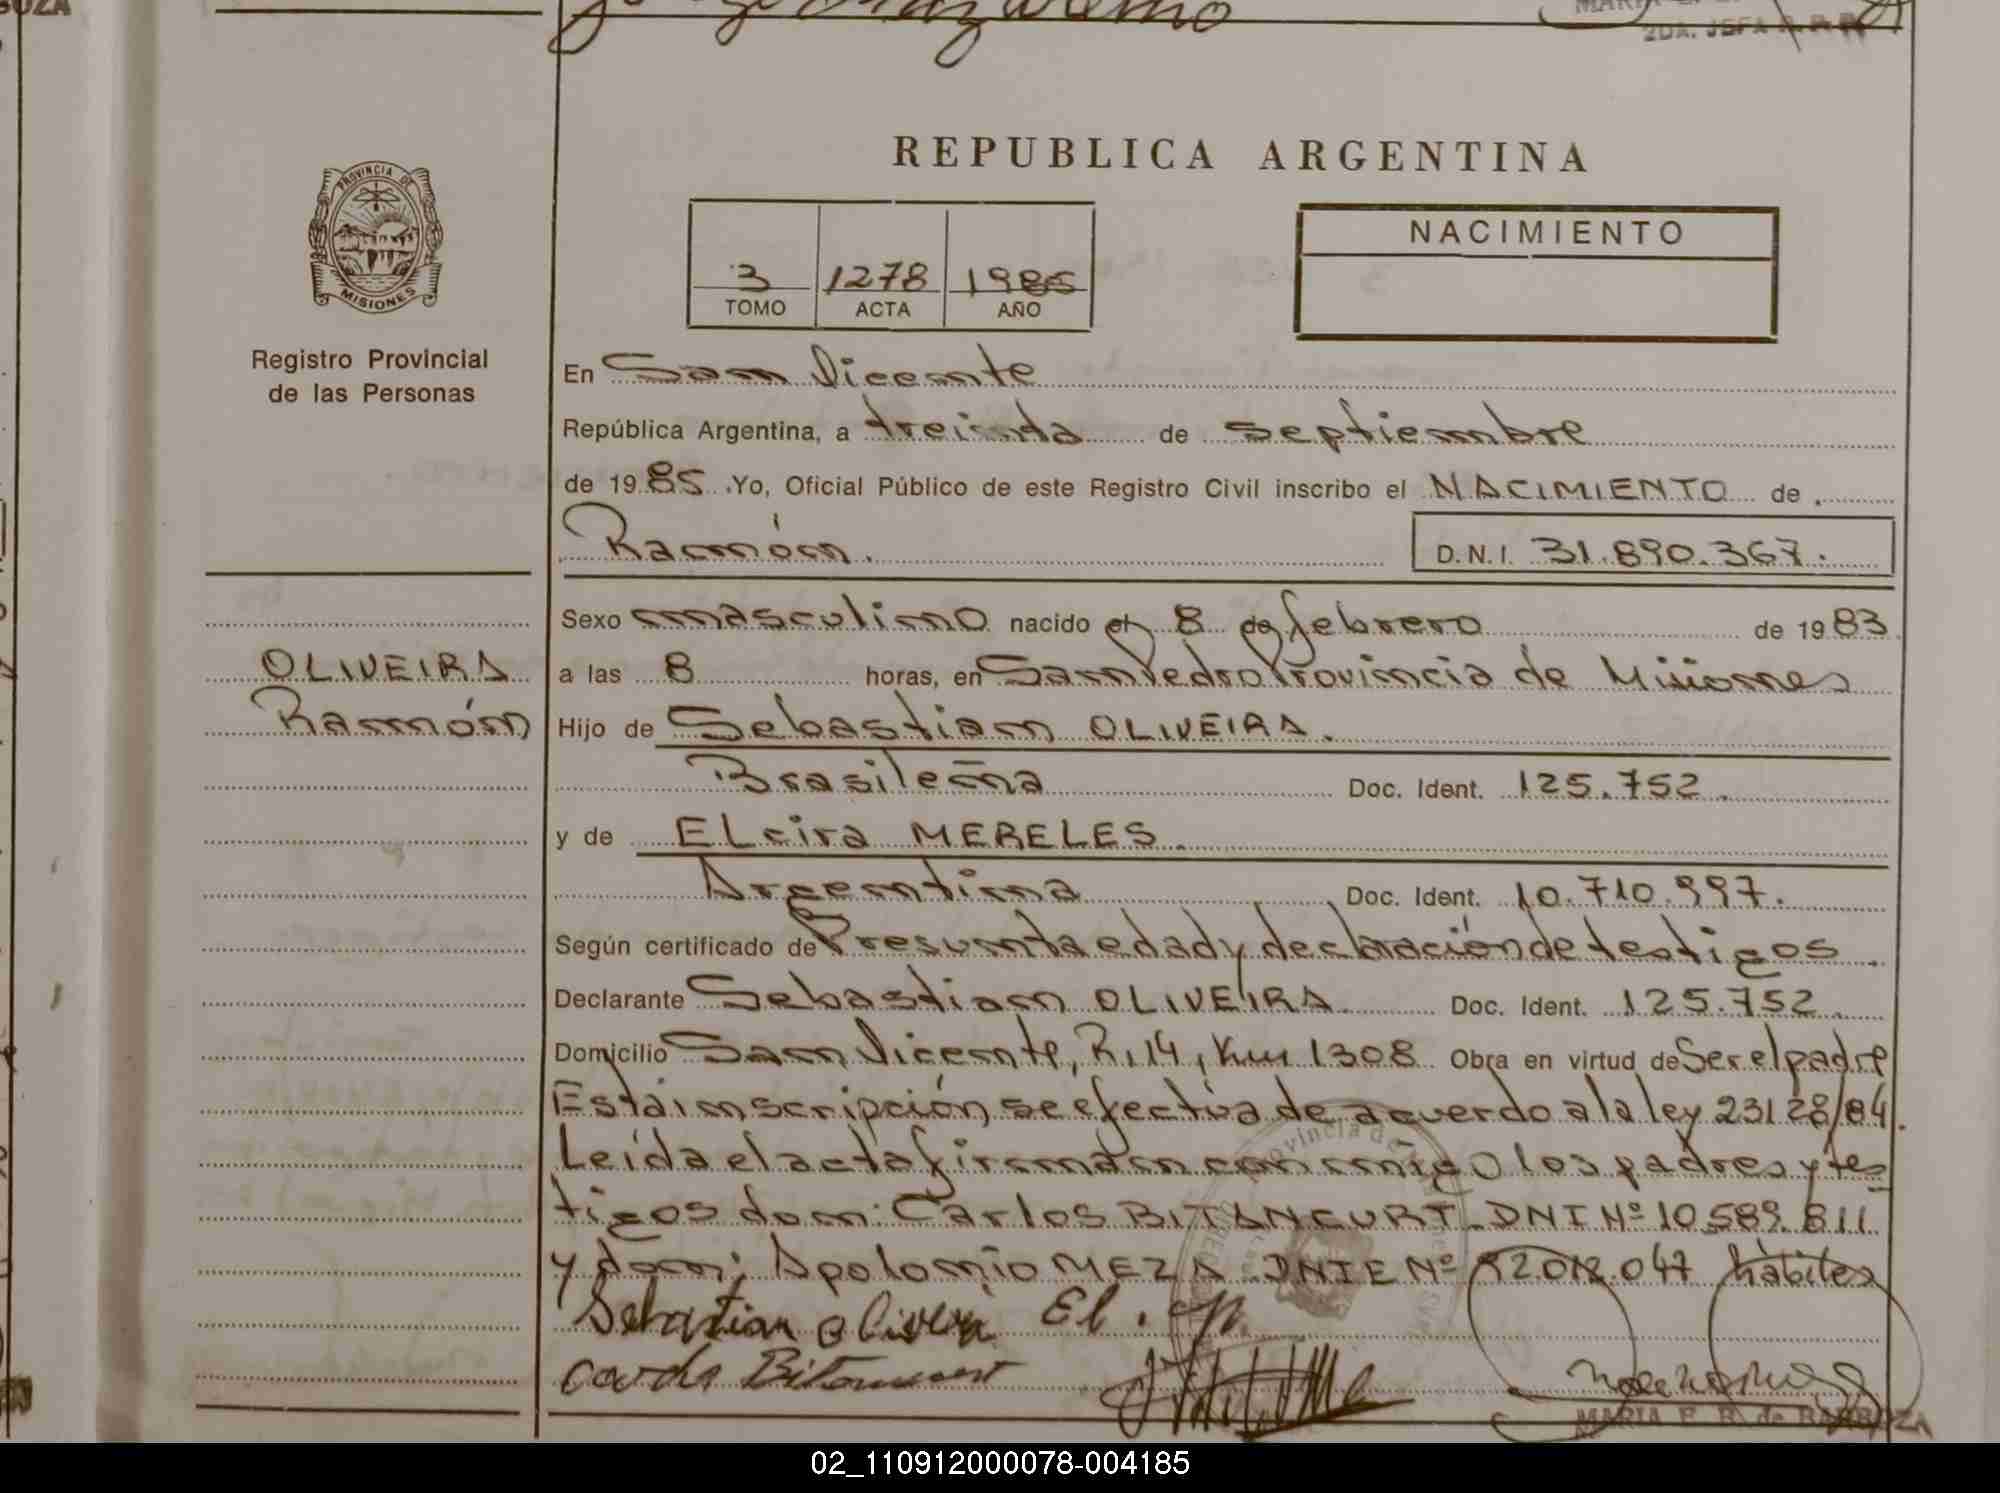 REPUBLICA ARGENTINA
PROVINCIA DE MISIONES
Registro Provincial
de las Personas
3 1278 1985
TOMO ACTA AÑO
NACIMIENTO
En San Vicente
República Argentina, a treinta de septiembre
de 1985. Yo, Oficial Público de este Registro Civil inscribo el NACIMIENTO de
Ramón. D.N.I. 31.890.367.
OLIVEIRA
Ramón
Sexo masculino nacido el 8 de febrero de 1983
a las 8 horas, en San Pedro Provincia de Misiones
Hijo de Sebastian OLIVEIRA.
Brasileña Doc. Ident. 125.752.
y de ELcira MERELES.
Argentina Doc. Ident. 10.710.997.
Según certificado de Presunta edad y declaración de testigos.
Declarante Sebastian OLIVEIRA Doc. Ident. 125.752.
Domicilio San Vicente, R. 14, Km 1308 Obra en virtud de Ser el padre
Esta inscripción se efectúa de acuerdo a la ley 23128/84.
Leída el acta firman conmigo los padres y tes
tigos don: Carlos BITANCURT DNI Nº 10.589.811
y don: Apolonio MEZA DNIE Nº 92.012.047 hábiles
Sebastian oliveira El.
Carlos Bitancurt
MARIA E. B. de BARBOZA
02_110912000078-004185